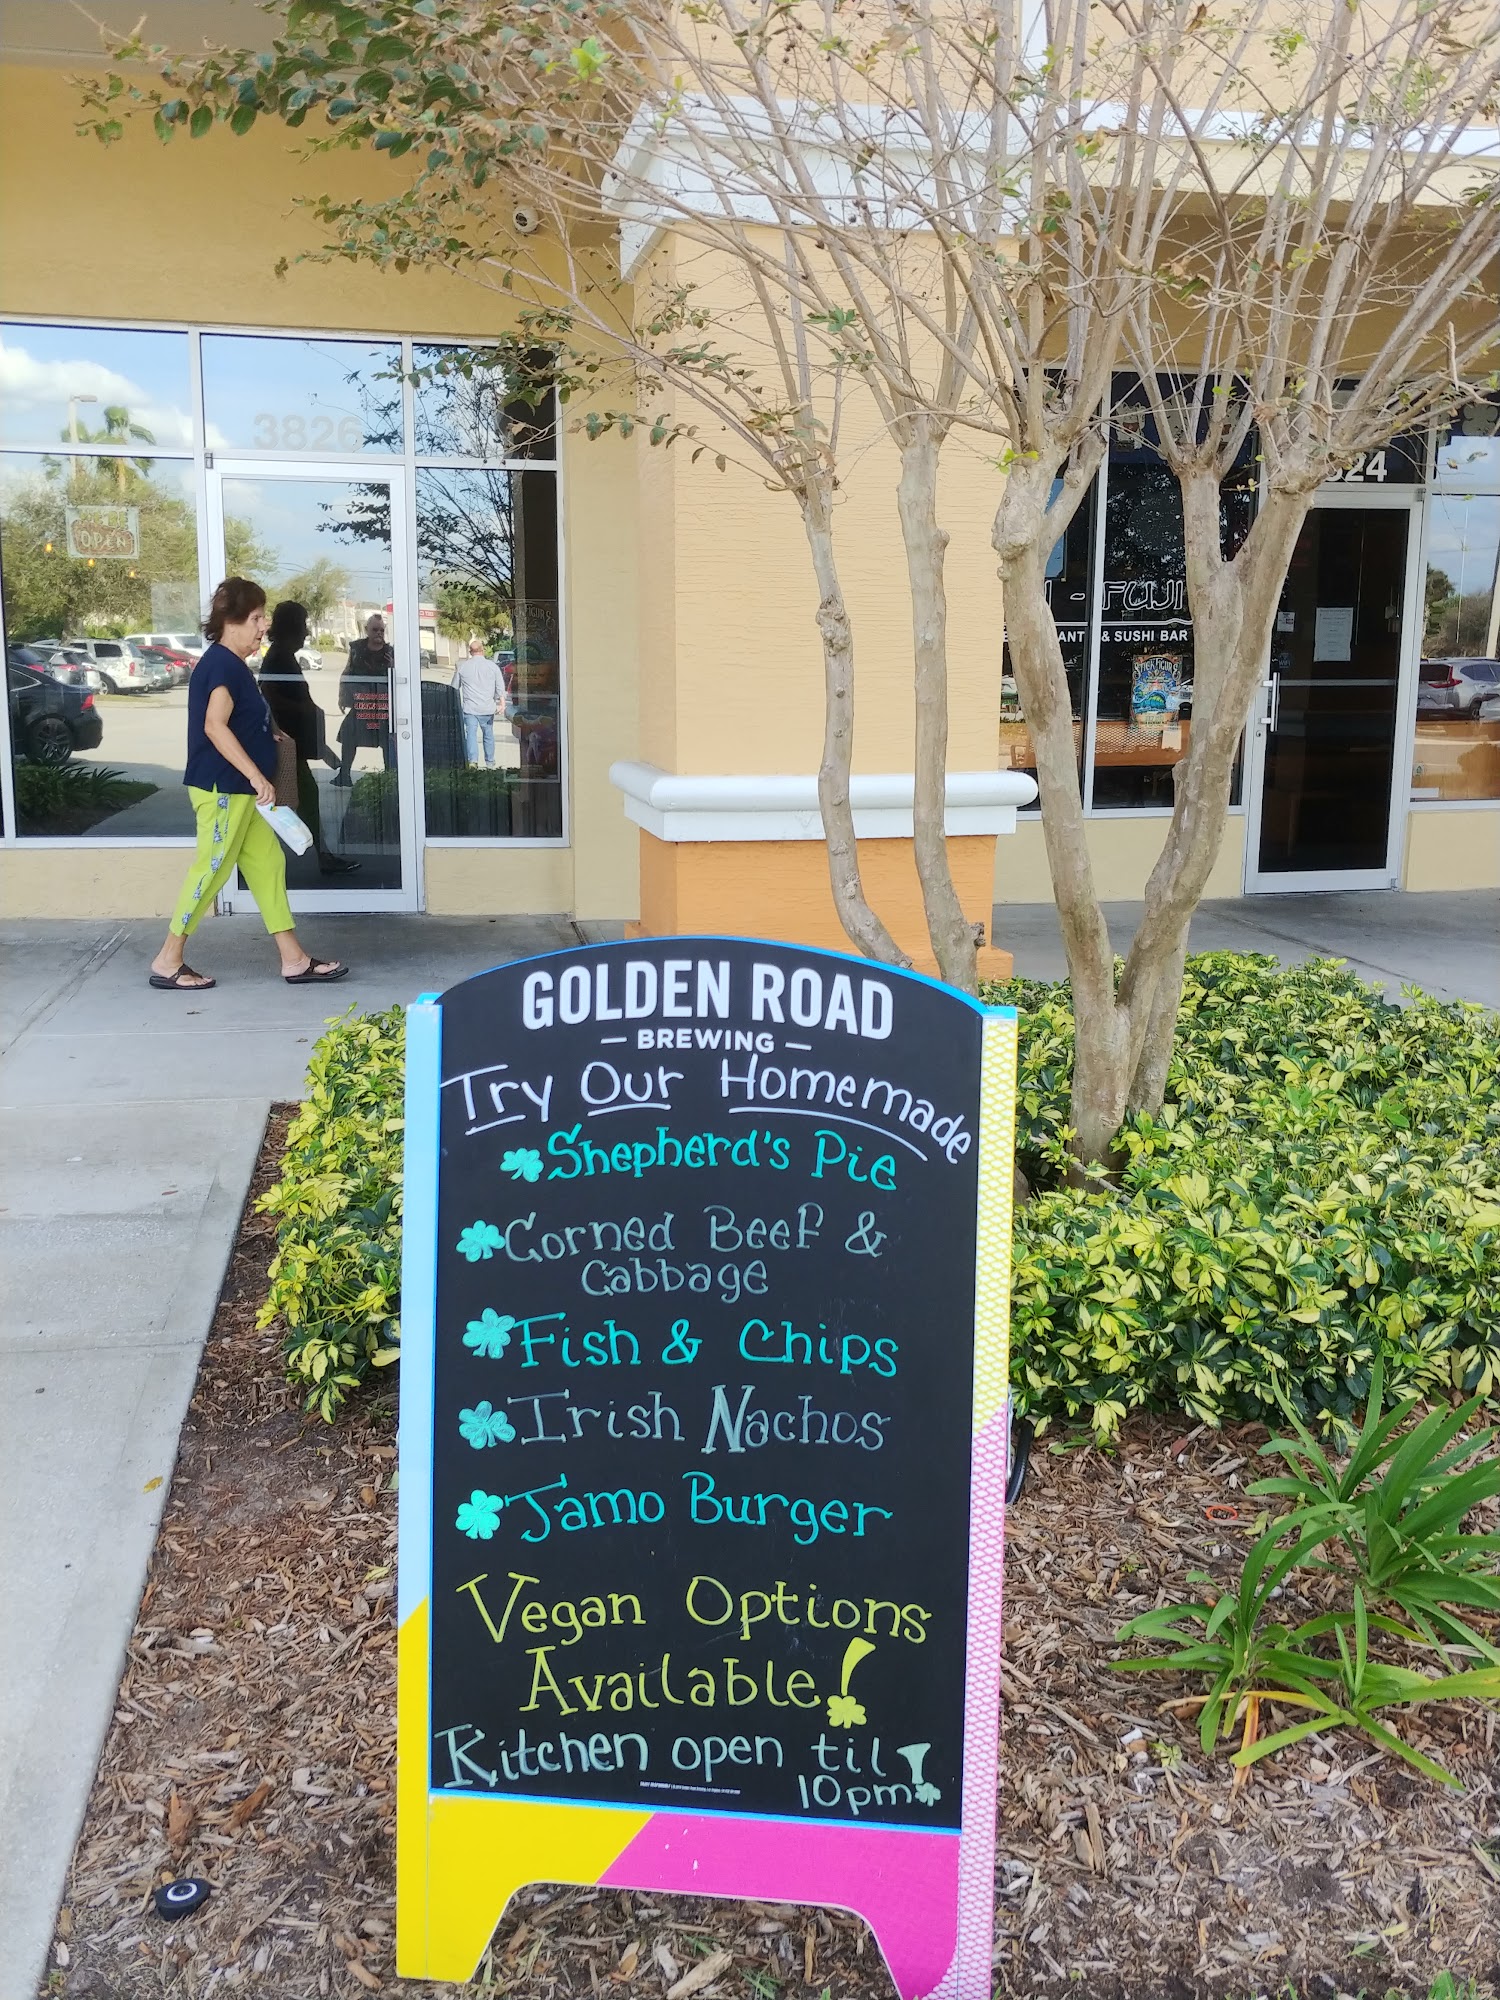 3826
OPEN
324
- FUJI
& SUSHI BAR
STICK FIGURE
GOLDEN ROAD
— BREWING —
Try Our Homemade
Shepherd's Pie
Corned Beef &
Cabbage
Fish & Chips
Irish Nachos
Jamo Burger
Vegan Options
Available!
Kitchen open til
10pm!